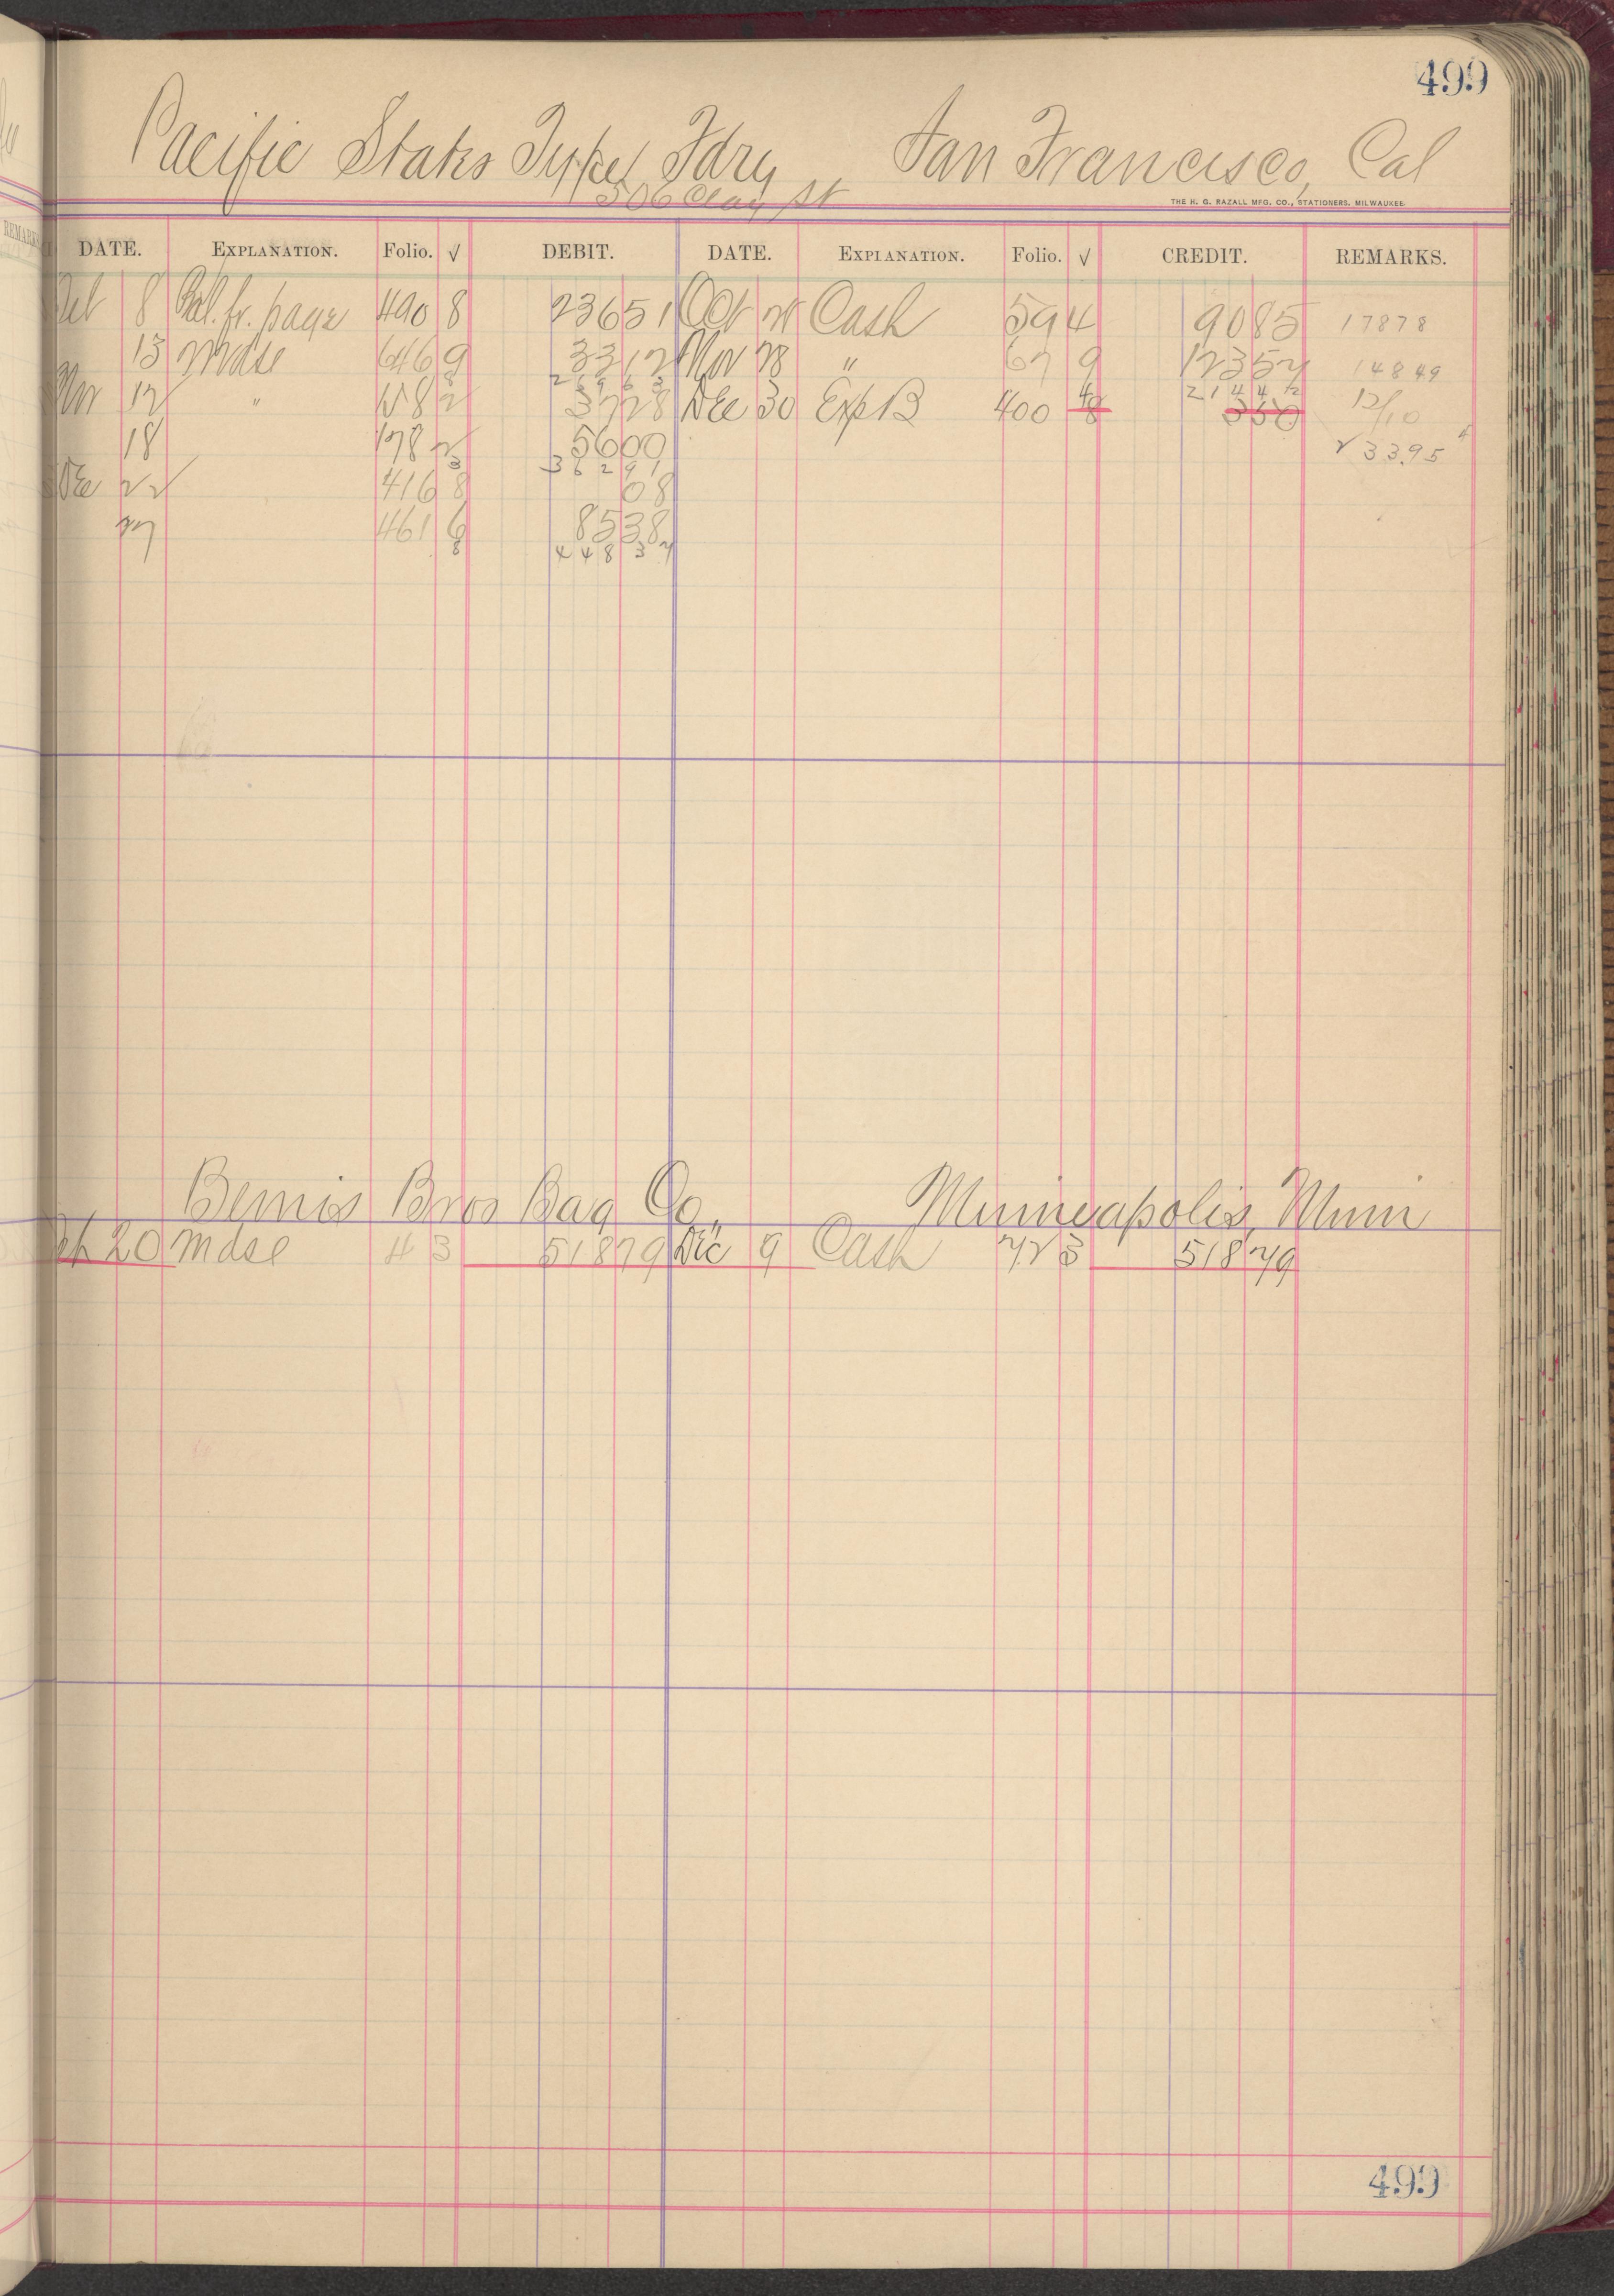 499
Pacific States Type Fdry, San Francisco, Cal
506 Clay St
THE H. G. RAZALL MFG. CO., STATIONERS, MILWAUKEE
DATE. EXPLANATION. Folio. √ DEBIT. DATE. EXPLANATION. Folio. √ CREDIT. REMARKS.
8 Bal. fr. page 490 8 23651 Oct Cash 594 9085 17878
13 Mdse 646 9 3312 Nov 28 " 67 9 12352 14849
26963 21442
Nov 12 " 158 2 3728 Dec 30 Exp B 400 350 12/10
18 178 2 5600 23395
36291
Dec 22 416 8 08
27 461 6 8538
44837
Bemis Bros Bag Co., Minneapolis, Minn
20 Mdse 43 51879 Dec 9 Cash 723 51879
499